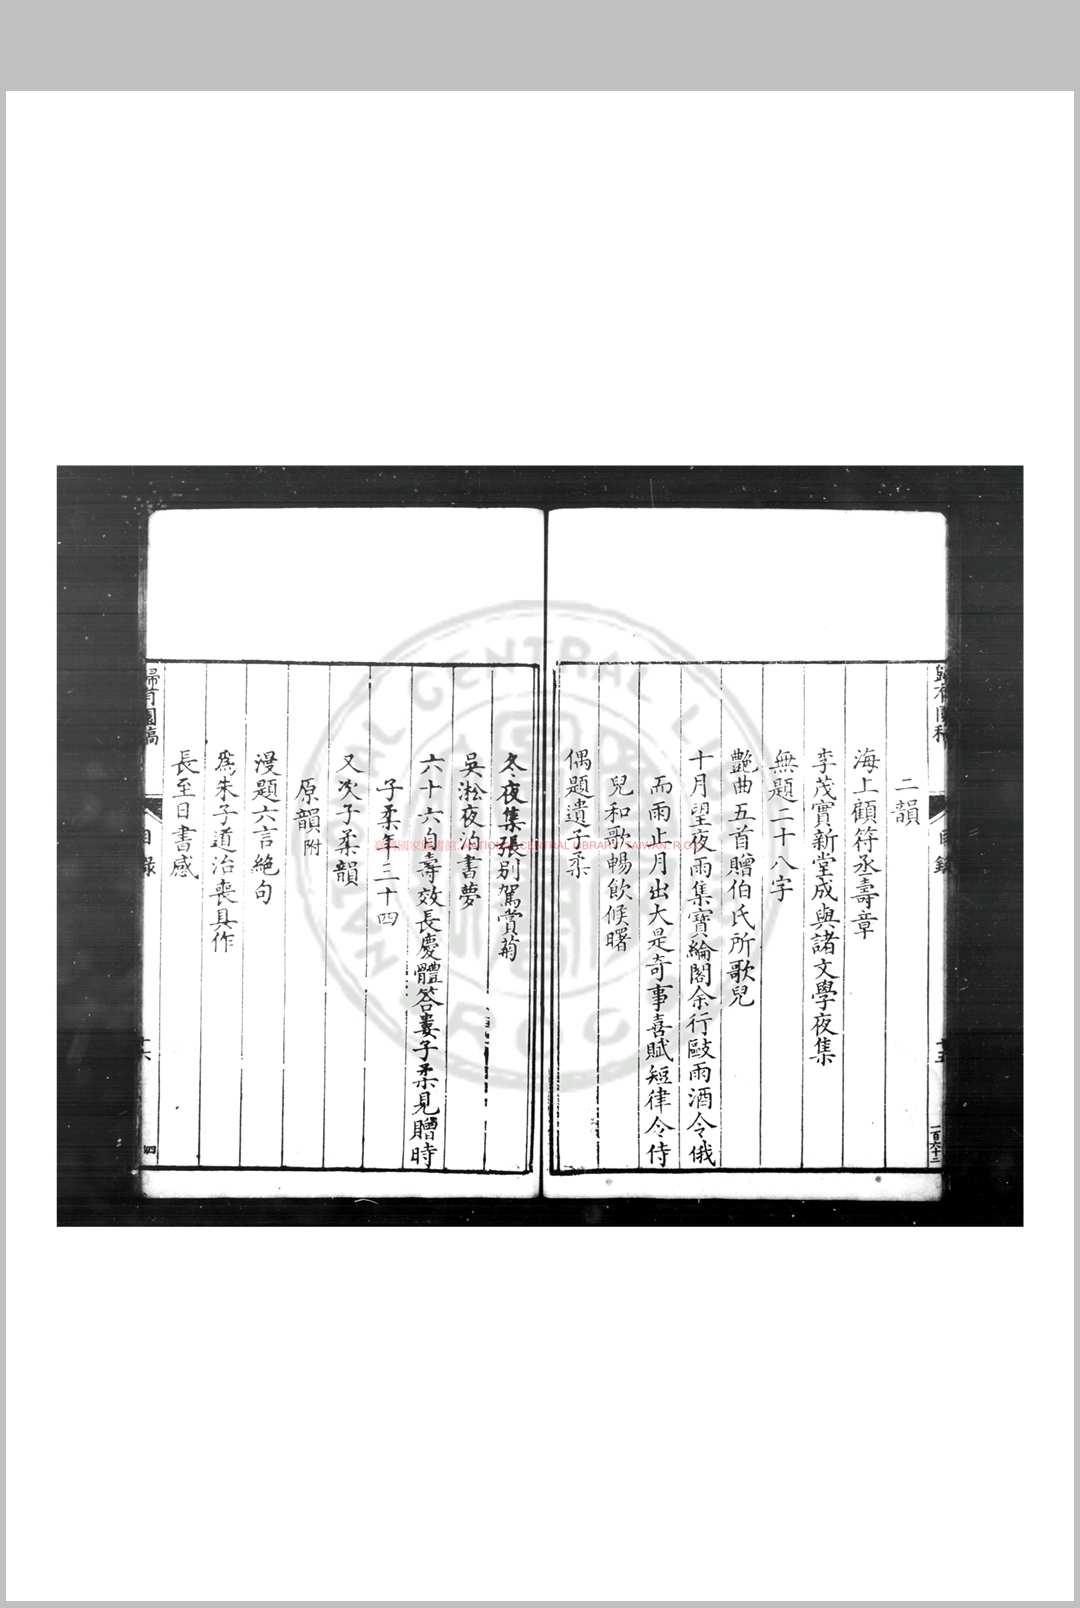 二韻
海上顧符丞壽章
李茂實新堂成與諸文學夜集
無題二十八字
艷曲五首贈伯氏所歌兒
十月望夜雨集寶綸閣余行敺雨酒令俄
而雨止月出大是奇事喜賦短律令侍
兒和歌暢飲候曙
偶題遺子柔
冬夜集張別駕賞菊
吳淞夜泊書夢
六十六自壽效長慶體答婁子柔見贈時
子柔年三十四
又次子柔韻
原韻附
漫題六言絕句
為朱子道治喪具作
長至日書感
歸有園稿
目錄
十五
一百六十二
歸有園稿
目錄
十六
四
NATIONAL CENTRAL LIBRARY
ROC
NATIONAL CENTRAL LIBRARY, TAIWAN, R.O.C